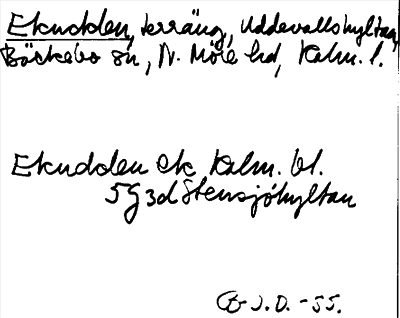 Ekudden, terräng, Uddevallshyltan,
Bäckebo sn, N. Möre hd, Kalm. l.
Ekudden ek Kalm. bl.
5G3d Stensjöhyltan
CB J.D. -55.